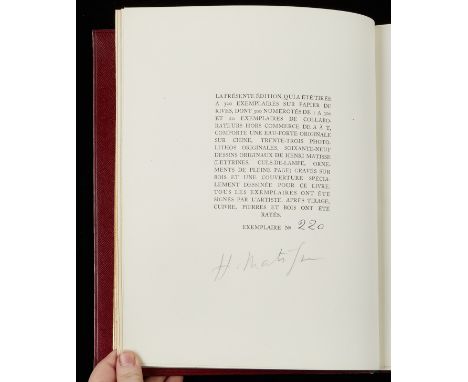 LA PRÉSENTE ÉDITION, QUI A ÉTÉ TIRÉE
A 320 EXEMPLAIRES SUR PAPIER DE
RIVES, DONT 300 NUMÉROTÉS DE 1 A 300
ET 20 EXEMPLAIRES DE COLLABO-
RATEURS HORS COMMERCE DE A A T,
COMPORTE UNE EAU-FORTE ORIGINALE
SUR CHINE, TRENTE-TROIS PHOTO-
LITHOS ORIGINALES, SOIXANTE-NEUF
DESSINS ORIGINAUX DE HENRI MATISSE
(LETTRINES, CULS-DE-LAMPE, ORNE-
MENTS DE PLEINE PAGE) GRAVÉS SUR
BOIS ET UNE COUVERTURE SPÉCIA-
LEMENT DESSINÉE POUR CE LIVRE.
TOUS LES EXEMPLAIRES ONT ÉTÉ
SIGNÉS PAR L'ARTISTE. APRÈS TIRAGE,
CUIVRE, PIERRES ET BOIS ONT ÉTÉ
RAYÉS.
EXEMPLAIRE No 220
H. Matisse